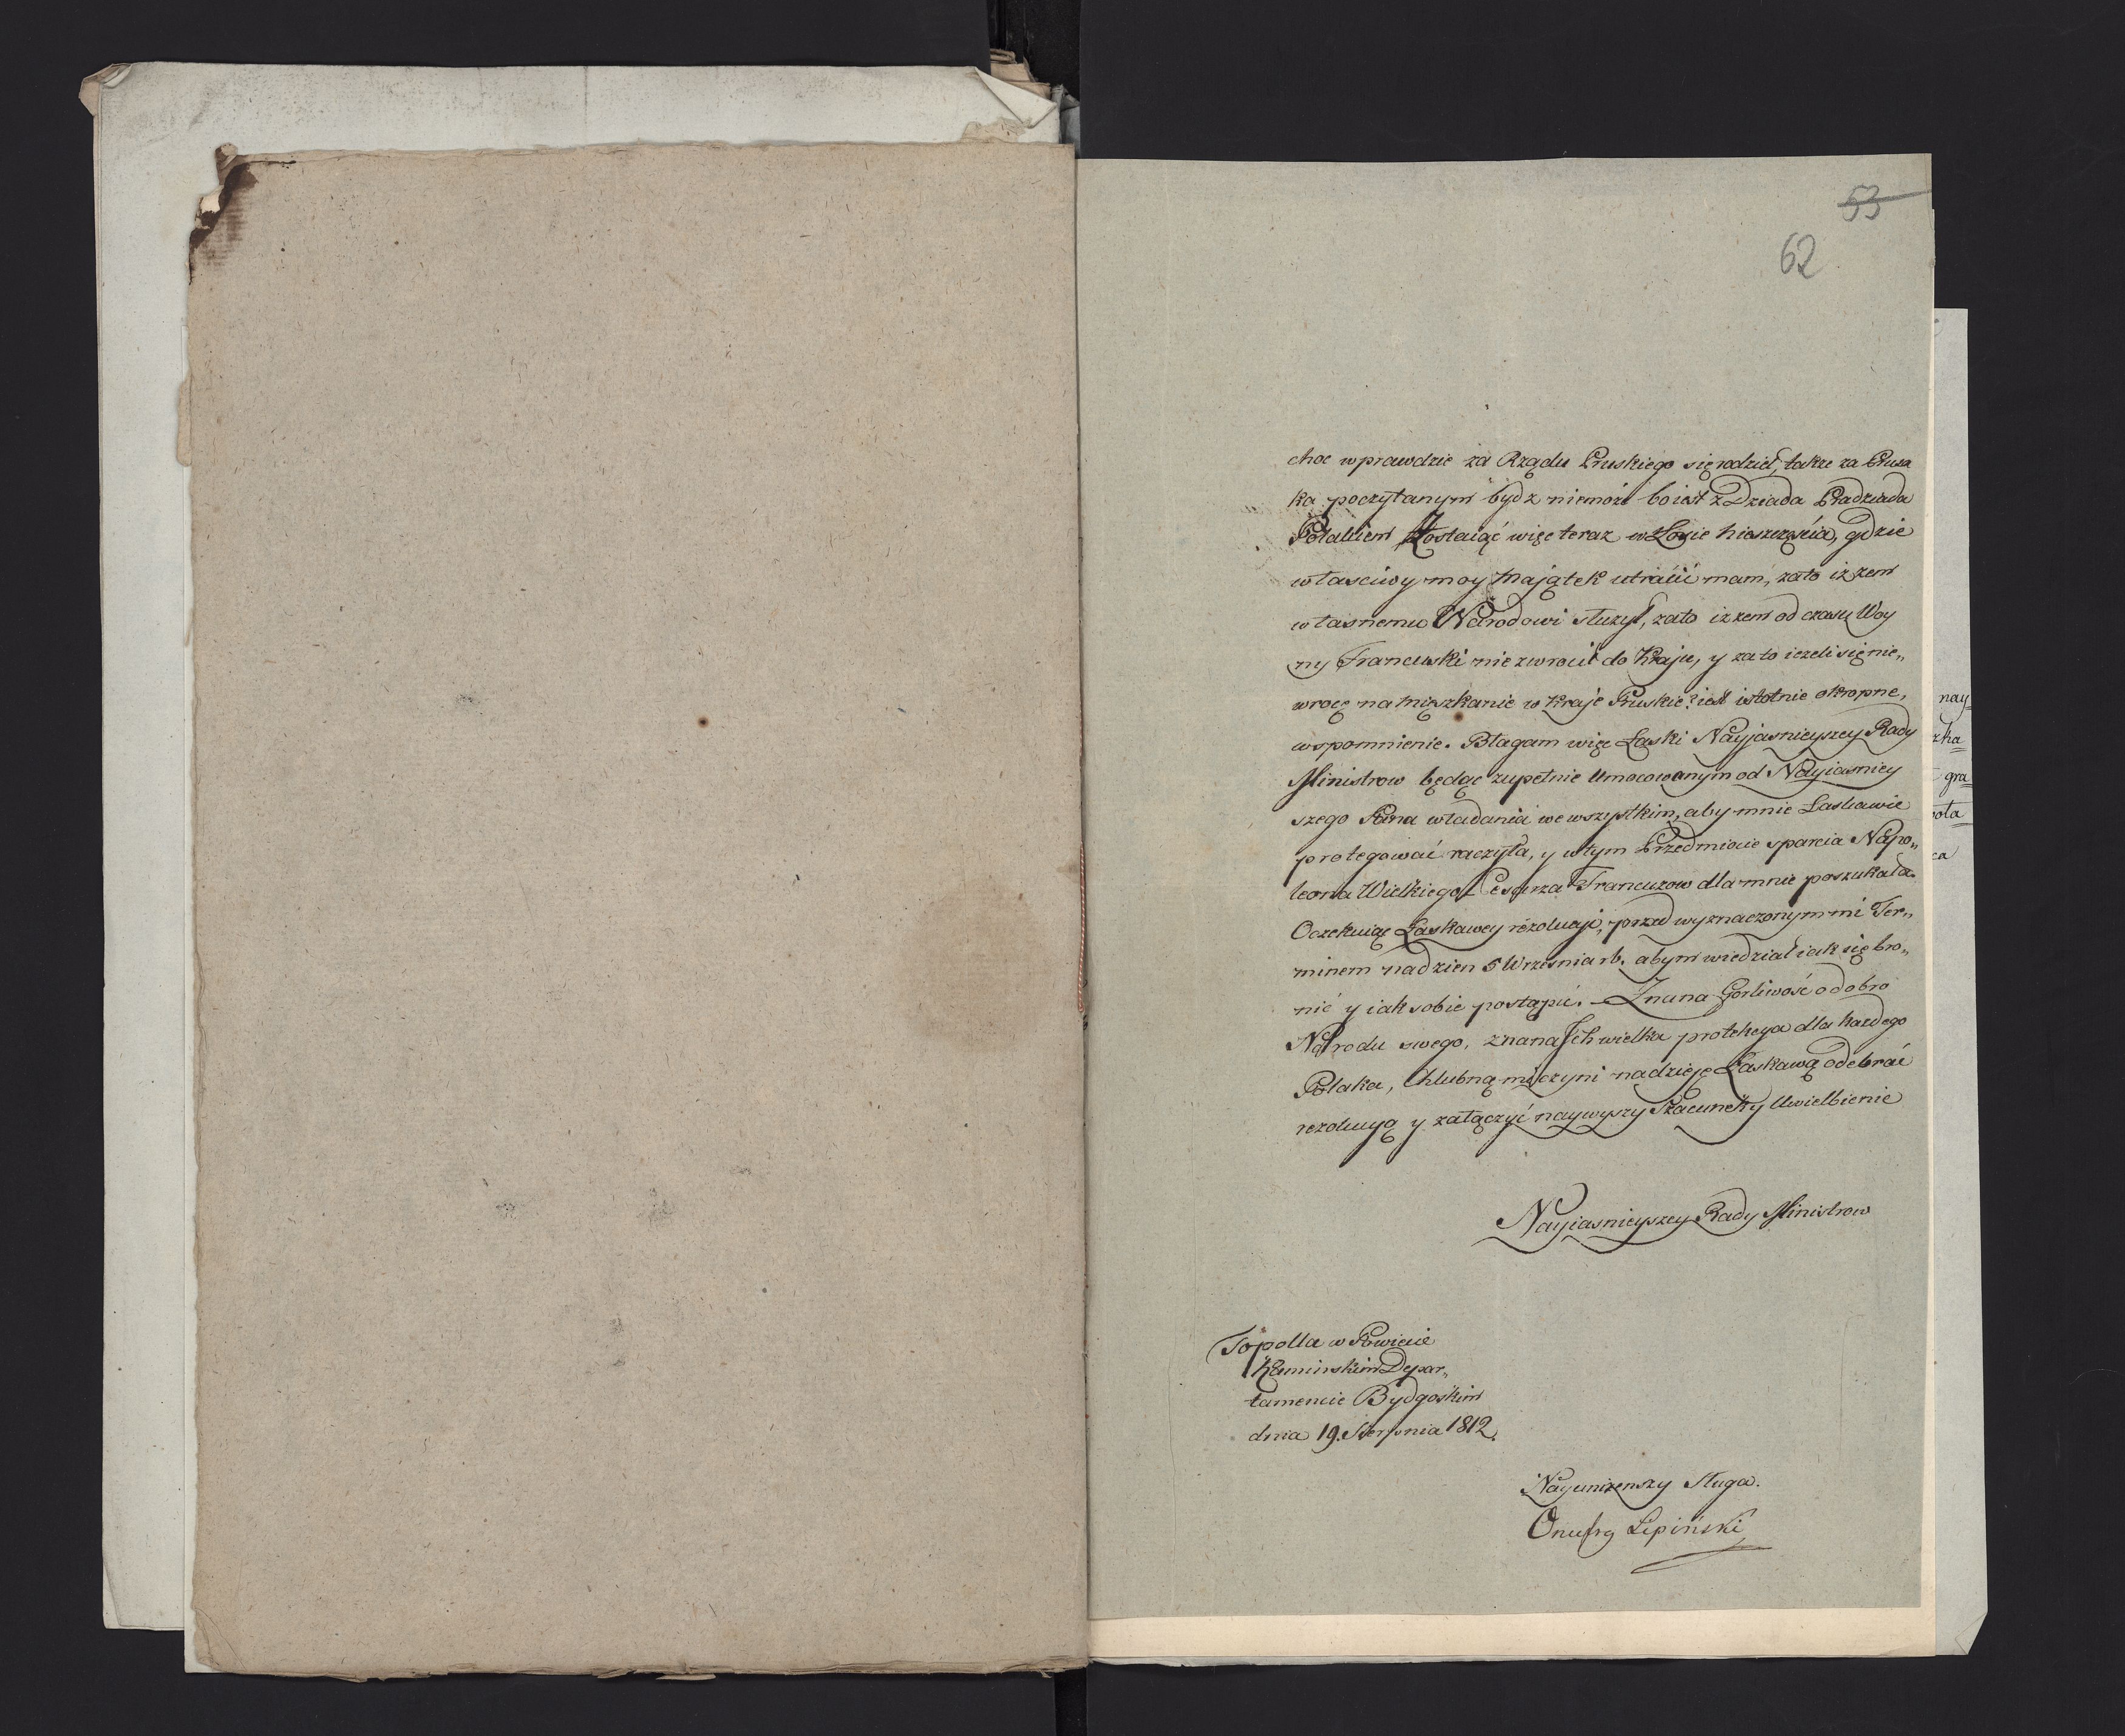 53
62
choc wprawdzie za Rządu Pruskiego się rodził, takze za Prusa
ka poczytanym bydz niemoze bo iest z Dziada Pradziada
Polakiem Zostaiąć więc teraz w Losie nieszczęścia, gdzie
własciwy moy Majątek utracić mam, zato iz zem
własnemu Narodowi słuzył, zato iz zem od czasu Woy
ny Francuski nie zwrocił do Kraju, y zato iezeli się nie„
wrocę na mięszkanie w Kraje Pruskie? iest istotnie okropne,
wspomnienie. Błagam więc Łaski Nayjasnieyszey Rady
Ministrow będąc zupełnie Umocowanym od Nayiasniey
szego Pana władania we wszystkim, aby mnie Laskawie
protegować raczyła, y wtym Przedmiocie sparcia Napo„
leona Wielkiego Cesarza Francuzow dla mnie poszukała.
Oczekuię Łaskawey rezolucji, przed wyznaczonym mi Ter„
minem nadzien 5 Wrzesnia rb. abym wiedział iak się bro„
nić y iak sobie postąpić. – Znana Gorliwość odobro
Narodu swego, znana Ich wielka protekcya dla kazdego
Polaka, Chlubną mi czyni nadzieję Łaskawą odebrać
rezolucyą y załączyć naywyszy Szacunek y Uwielbienie
Nayiasnieyszey Rady Ministrow
Topolla w Powiecie
Kaminskim Depar„
tamencie Bydgoskim
dnia 19. Sierpnia 1812.
Nayunizenszy Sługa.
Onufry Lipiński
nay
gra